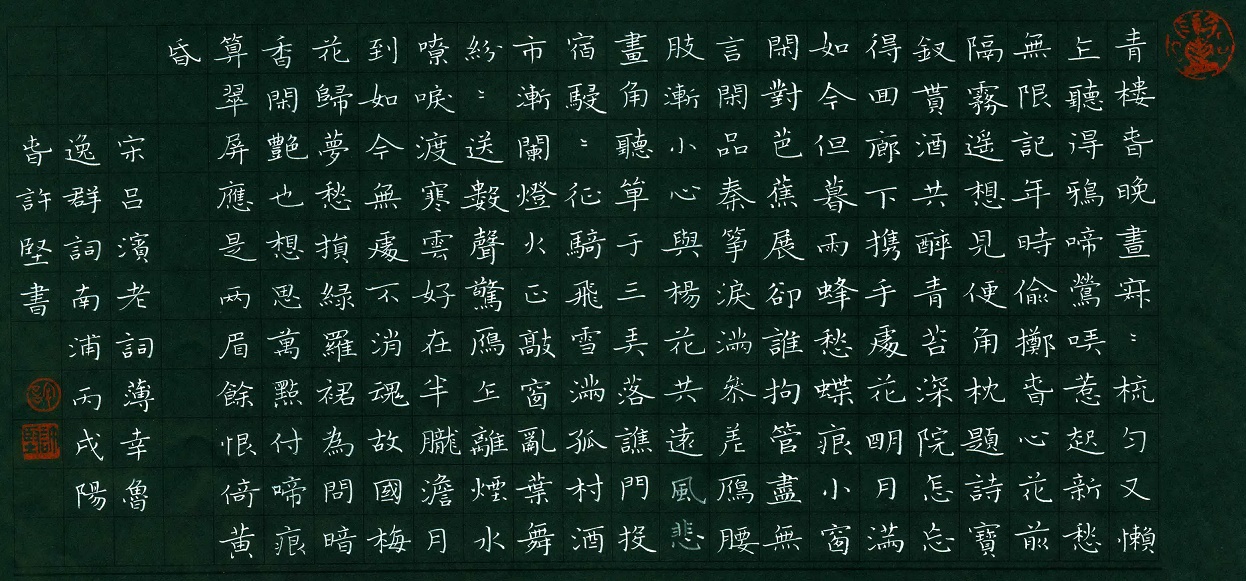 青樓旾晚晝寂〻梳勻又懶
乍聽得鴉啼鶯哢惹起新愁
無限記年時偷擲旾心花前
隔霧遥想見便角枕題詩寶
釵貰酒共醉青苔深院怎忘
得回廊下携手處花明月滿
如今但暮雨蜂愁蝶痕小窗
閑對芭蕉展卻誰拘管盡無
言閑品秦箏淚滿參差鴈腰
肢漸小心與楊花共遠風悲
畫角聽單于三弄落譙門投
宿駸〻征騎飛雪滿孤村酒
市漸闌燈火正敲窗亂葉舞
紛〻送數聲驚鴈乍離煙水
嘹唳渡寒雲好在半朧澹月
到如今無處不消魂故國梅
花歸夢愁損綠羅裙為問暗
香閑艷也想思萬點付啼痕
算翠屏應是兩眉餘恨倚黃
昏
宋呂濱老詞薄幸魯
逸群詞南浦丙戌陽
旾許堅書